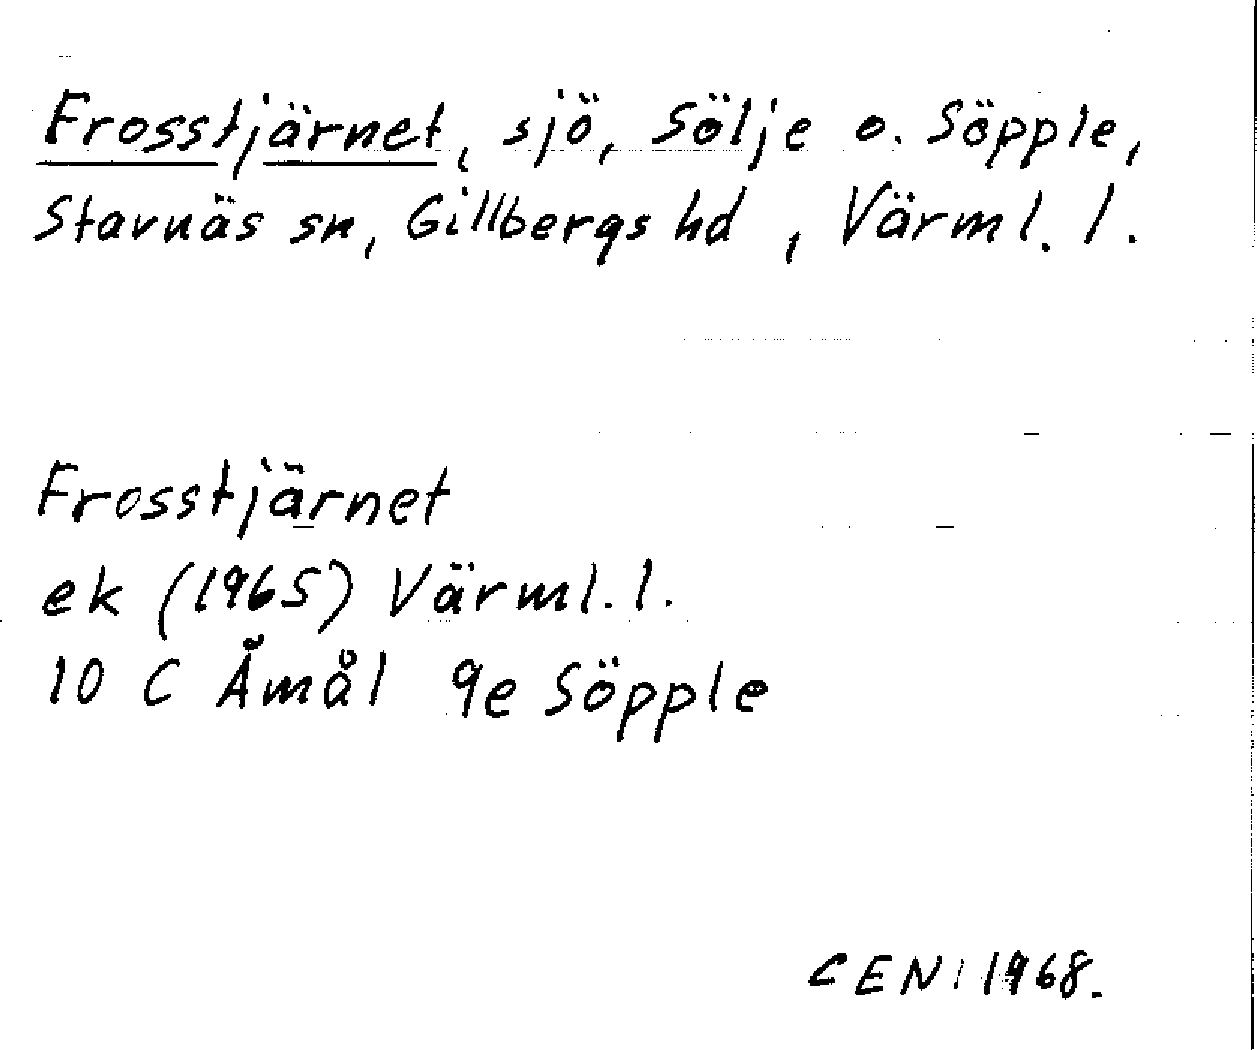 Frosstjärnet, sjö, Sölje o. Söpple,
Stavnäs sn, Gillbergs hd, Värml. l.
Frosstjärnet
ek (1965) Värml. l.
10 C Åmål 9e Söpple
CEN: 1968.